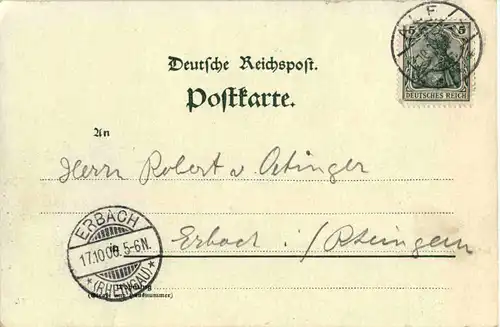 5 5
DEUTSCHES REICH
Deutsche Reichspost.
Postkarte.
An
Herrn Robert v Oetinger
ERBACH
17.10.06. 5-6N.
* (RHEINGAU) *
Erbach i/Rheingau
Wohnung
(Straße und Hausnummer)